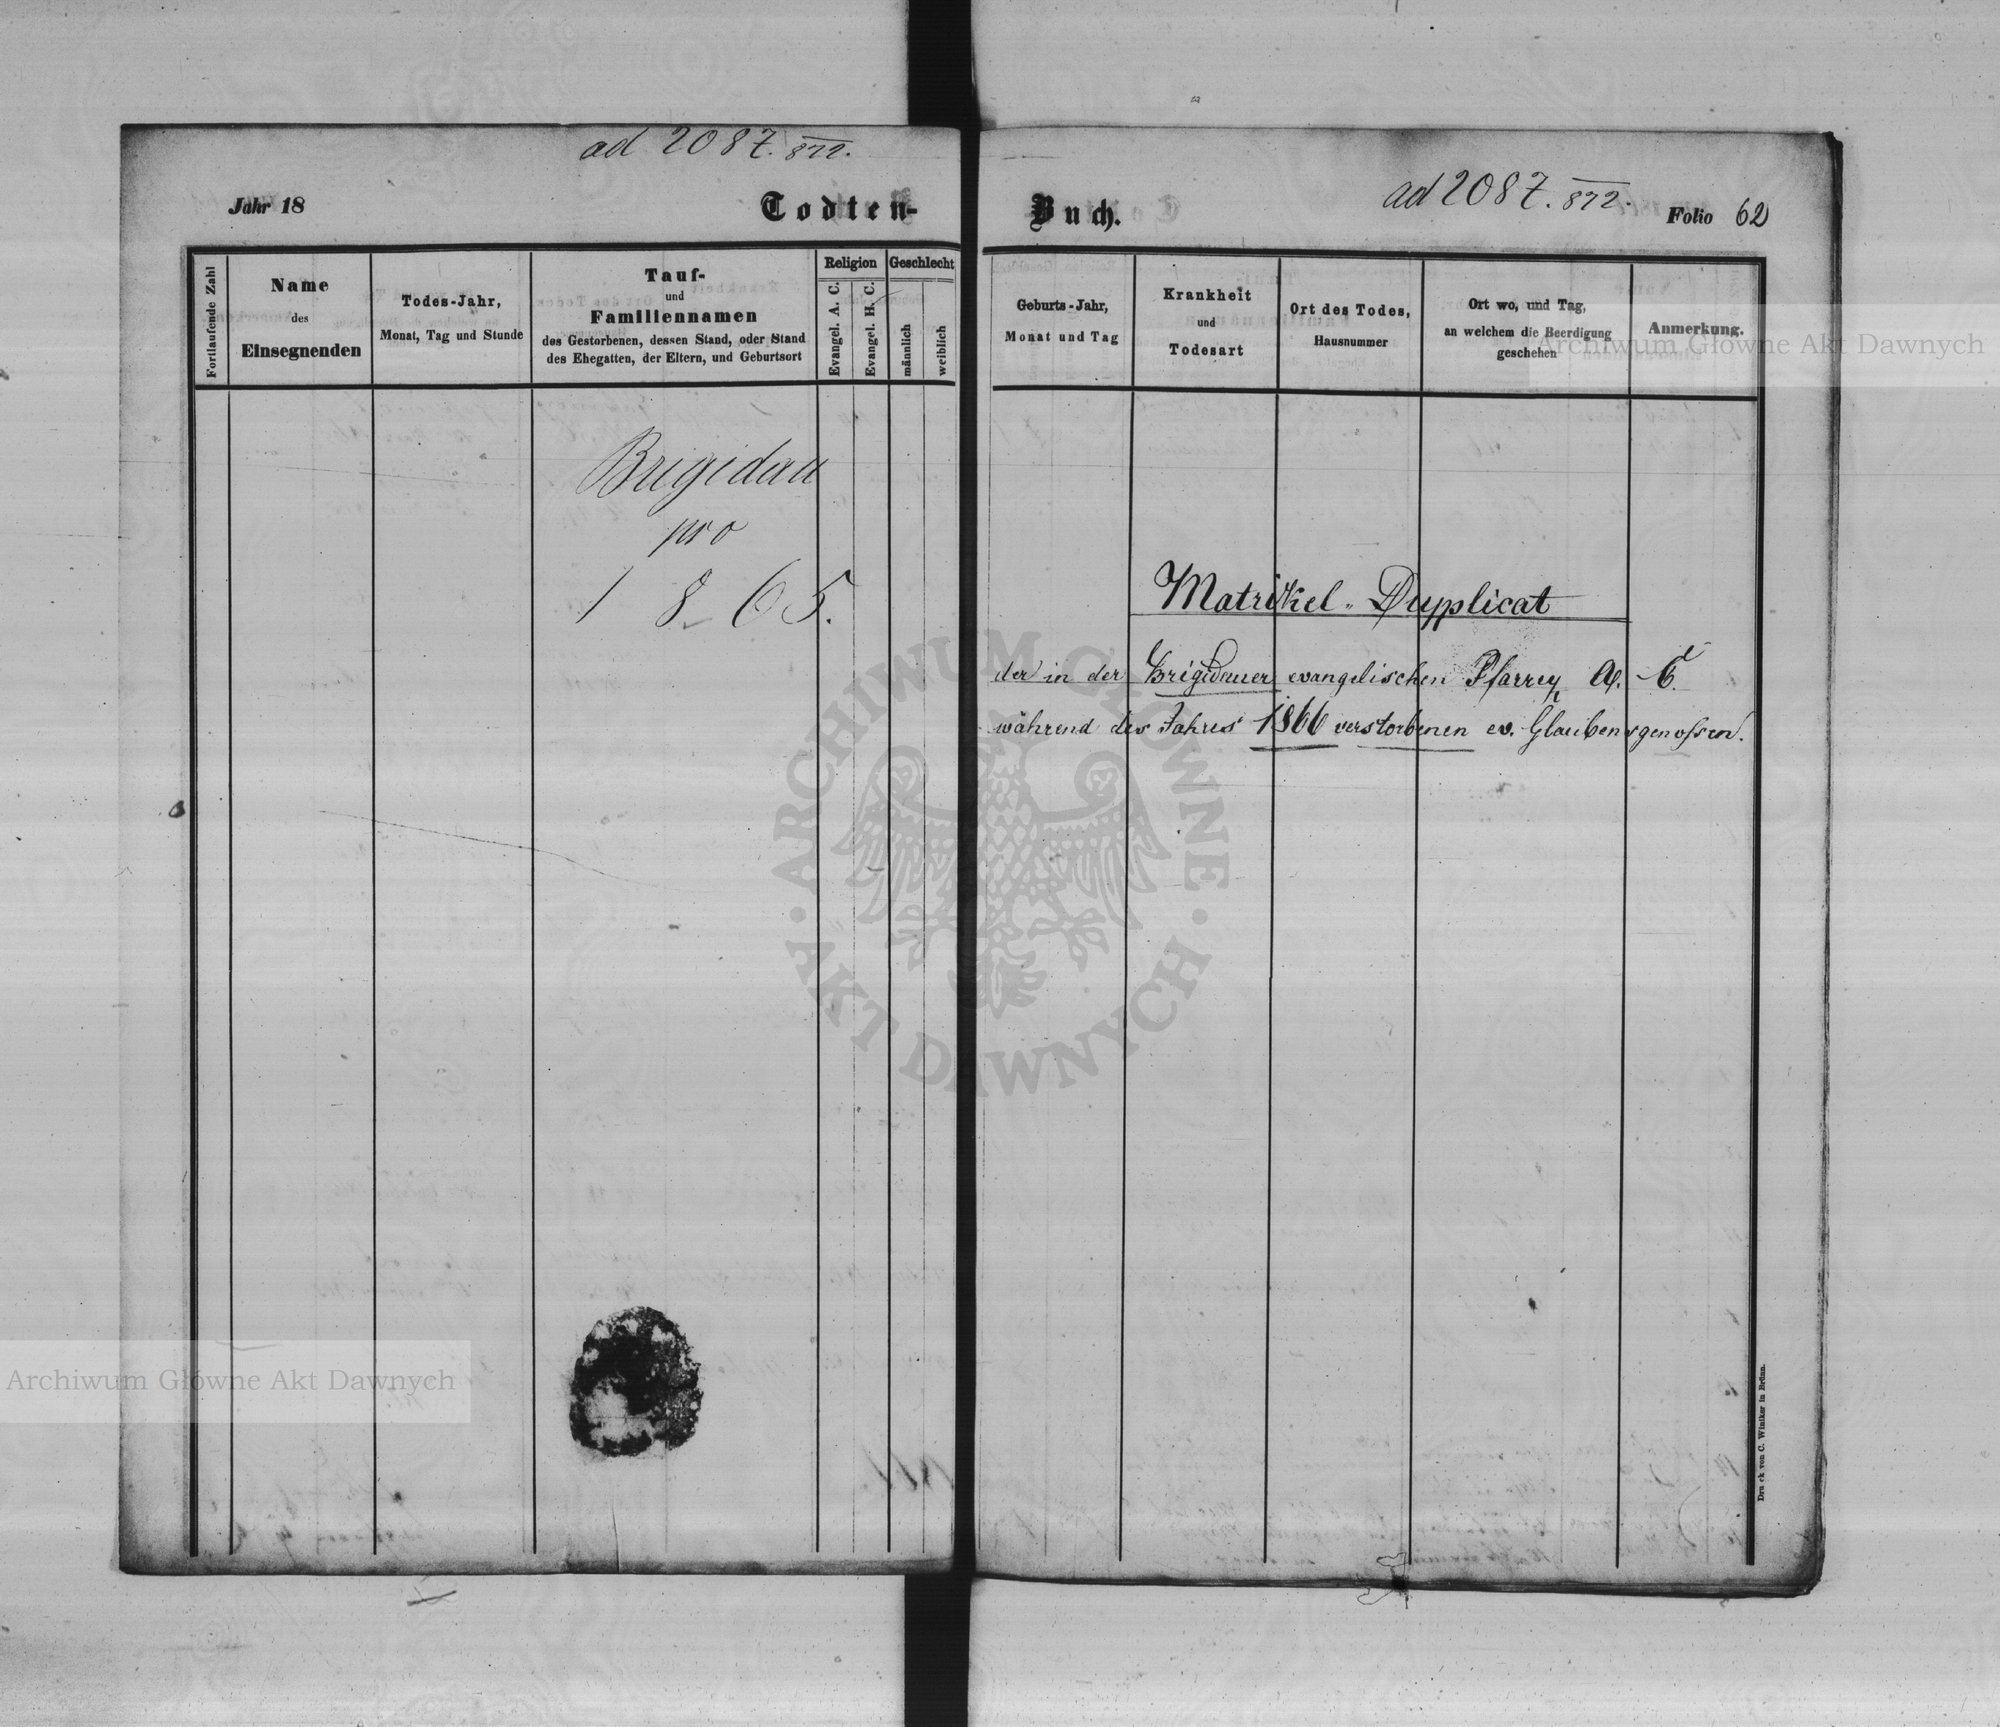 ad 2087. 872.
Jahr 18
Todten-
Fortlaufende Zahl
Name
des
Einsegnenden
Todes-Jahr,
Monat, Tag und Stunde
Tauf-
und
Familiennamen
des Gestorbenen, dessen Stand, oder Stand
des Ehegatten, der Eltern, und Geburtsort
Religion
Evangel. A. C.
Evangel. H. C.
Geschlecht
männlich
weiblich
Brigidau
pro
1865.
ad 2087. 872.
Buch.
Folio 62
Geburts-Jahr,
Monat und Tag
Krankheit
und
Todesart
Ort des Todes,
Hausnummer
Ort wo, und Tag,
an welchem die Beerdigung
geschehen
Anmerkung.
Matrikel-Duplicat
der in der Brigidauer evangelischen Pfarrey A. C.
während des Jahres 1866 verstorbenen ev. Glaubensgenossen.
Druck von C. Winiker in Brünn.
Archiwum Główne Akt Dawnych
ARCHIWUM GŁÓWNE
AKT DAWNYCH
Archiwum Główne Akt Dawnych